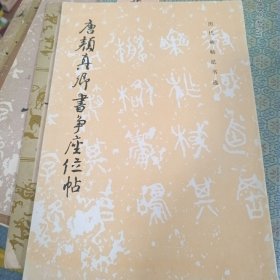 历代碑帖法书选
唐颜真卿书争座位帖